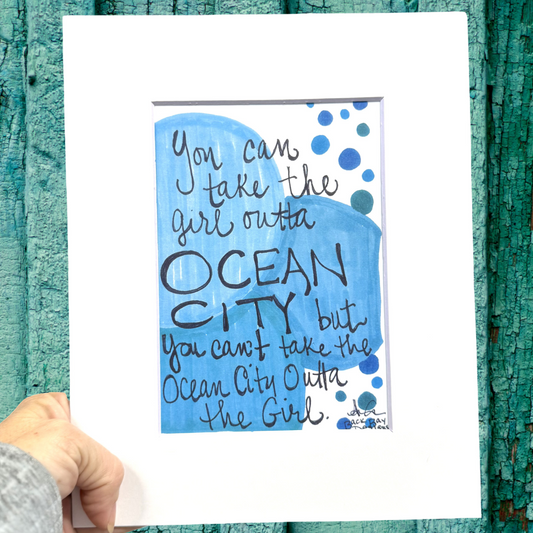 You can
take the
girl outta
OCEAN
CITY, but
You can't take the
Ocean City Outta
the Girl.
BACK BAY